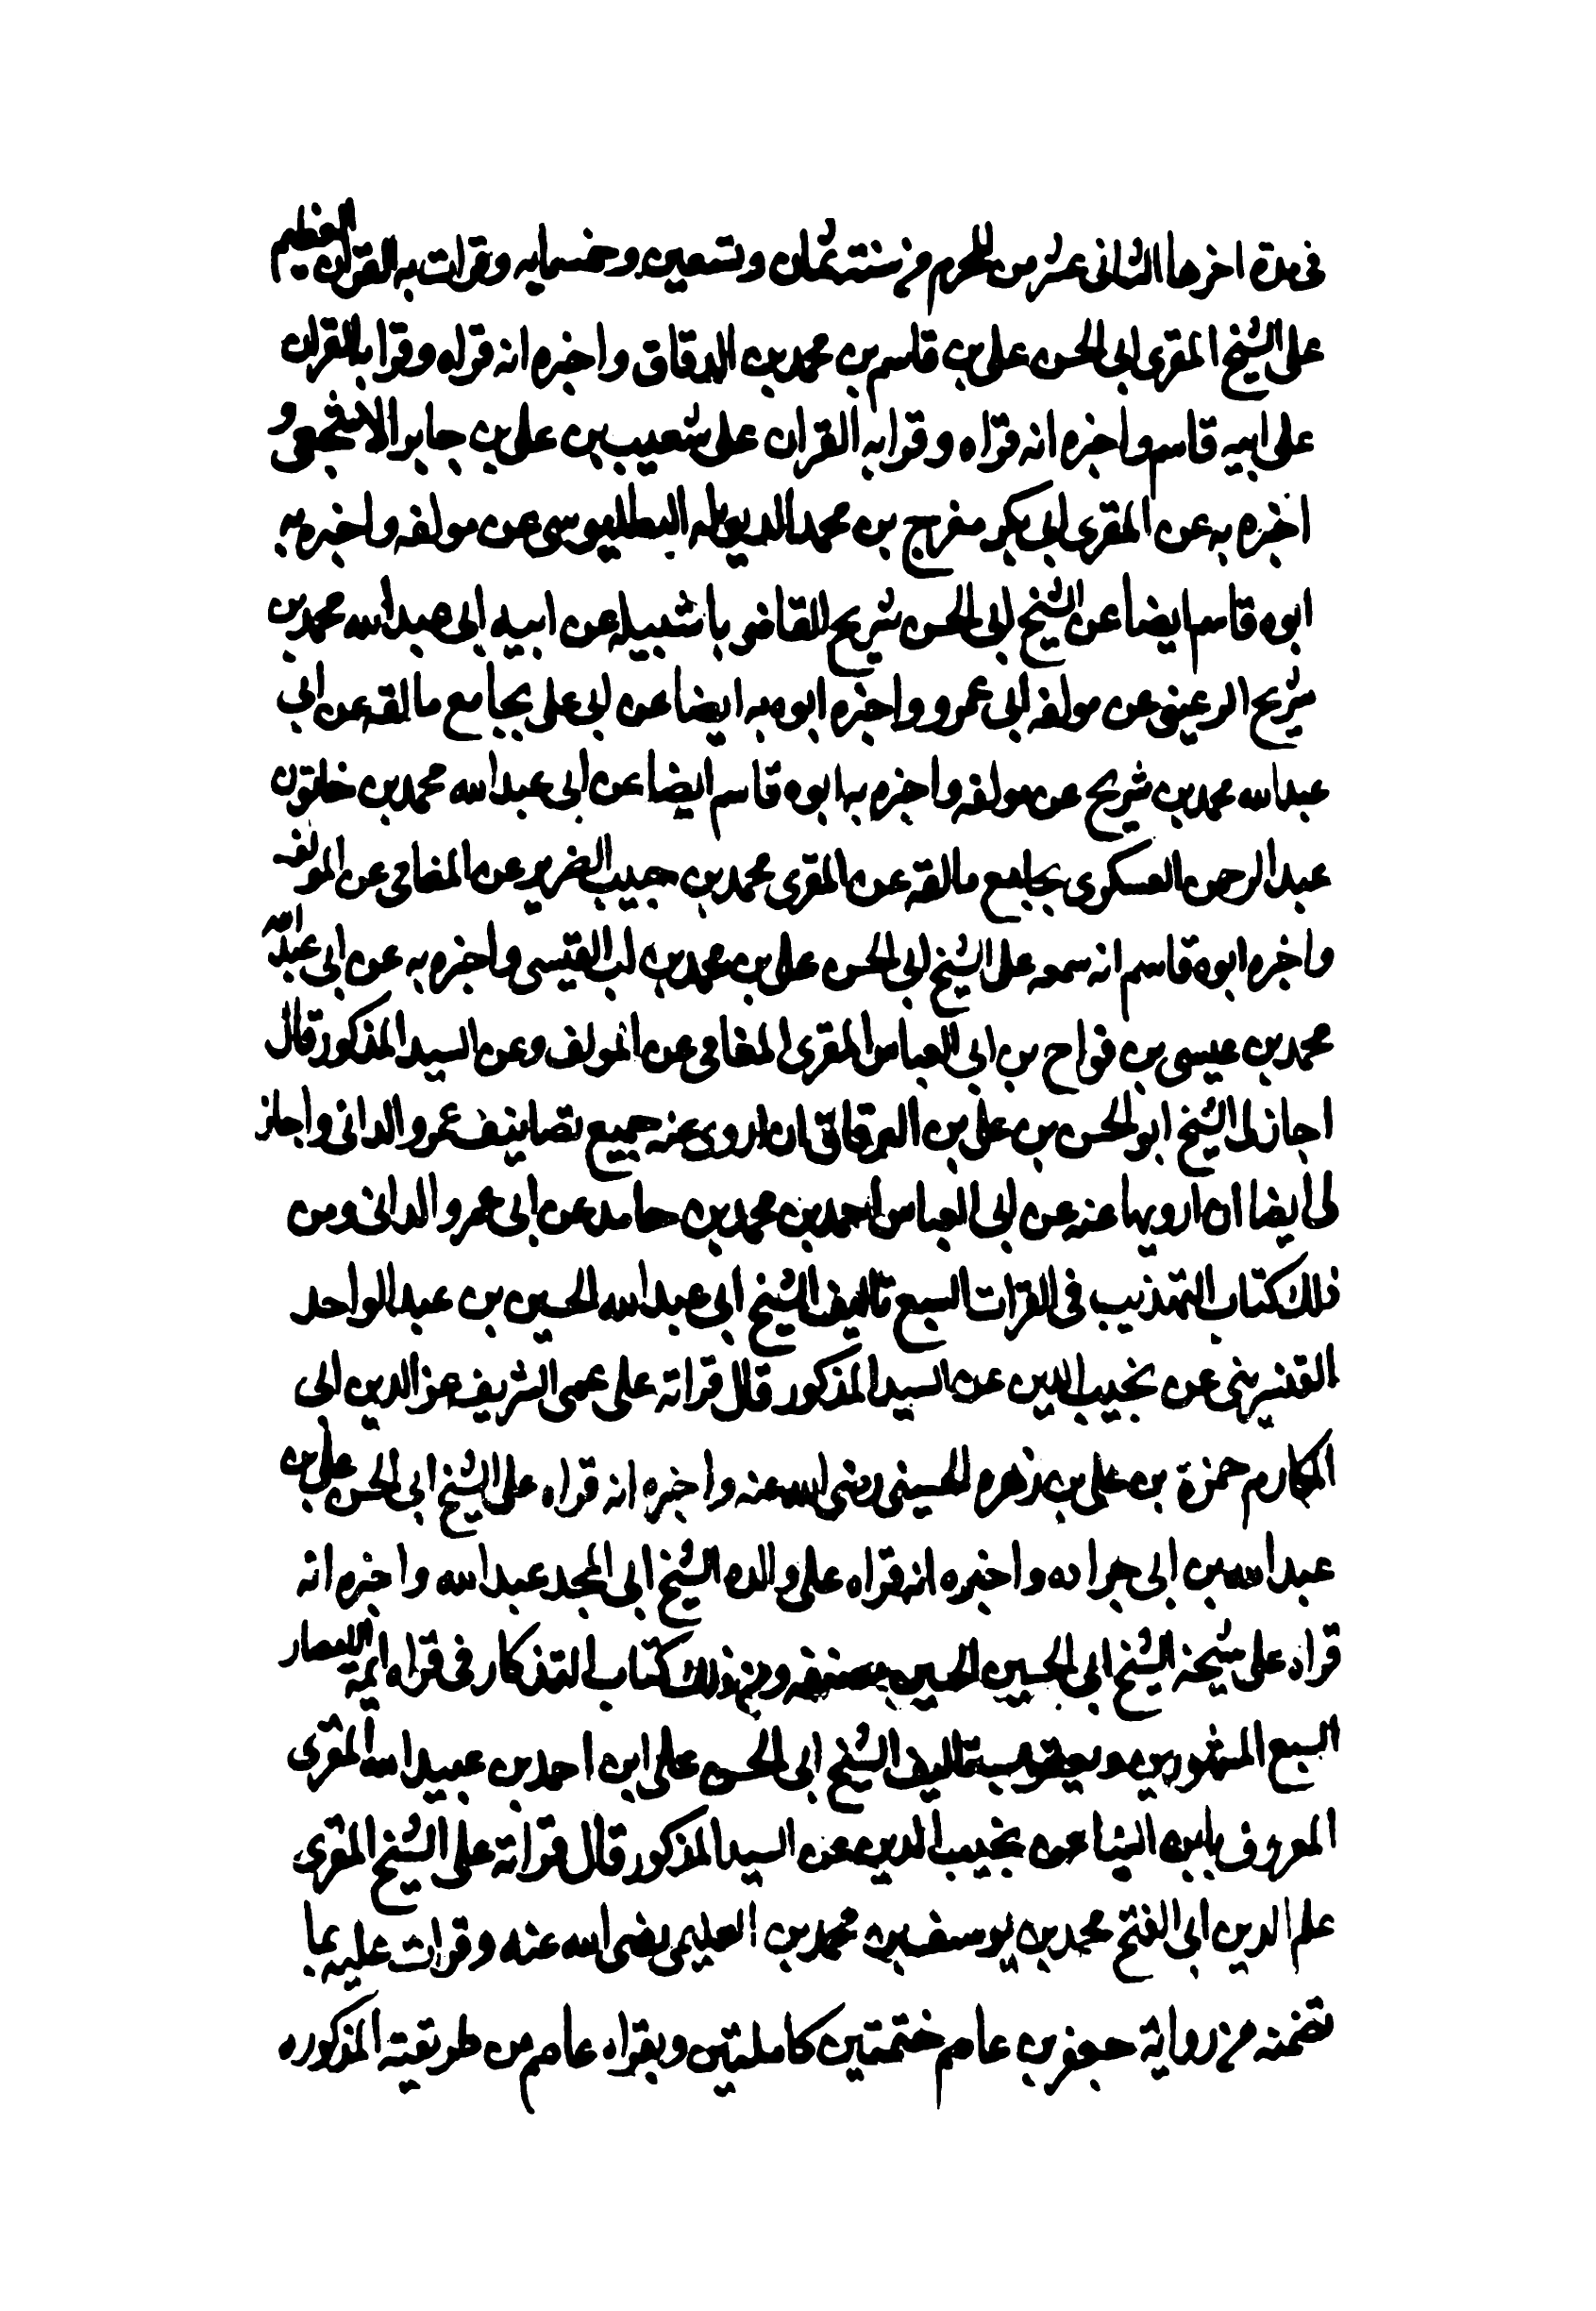 فى مدة اخرها الثانى عشر من المحرم من سنة ثمان وتسعين وخمسمايه وقرات به القران العظيم
على الشيخ المقرى ابى الحسن على بن قاسم بن محمد بن الدقاق واخبره انه قراه وقرا به القران
على ابيه قاسم واخبره انه قراه وقرا به القران على شعيب بن على بن جابر الاشجعى و
اخبره به عن المقرى ابى بكر مفرج بن محمد البطليوسى عن مولفه واخبره به
ابوه قاسم ايضا عن الشيخ ابى الحسن شريح القاضى باشبيله عن ابيه ابى عبد الله محمد بن
شريح الرعينى عن مولفه ابى عمرو واخبره ابوه به ايضا عن ابى على بجامع مالقه عن ابى
عبد الله محمد بن شريح عن مولفه واخبره به ابوه قاسم ايضا عن ابى عبد الله محمد بن
عبد الرحمن العسكرى بجامع مالقه عن المقرى محمد بن حبيب الضرير عن المغامى عن المولفه
واخبره ابوه قاسم انه سمعه على الشيخ ابى الحسن على بن محمد بن لب القيسى واخبره به عن ابى عبد الله
محمد بن عيسى بن فواح بن ابى العباس المقرى المغامى عن المولف وعن السيد المذكور قال
اجاز لى الشيخ ابو الحسن بن على بن الدقاق ان اروى عنه جميع تصانيف عمرو الدانى واجاز
لى ايضا ان ارويها عنه عن ابى العباس احمد بن محمد بن حامد عن ابى عمرو الدانى ومن
ذلك كتاب التهذيب فى القرات السبع تاليف الشيخ ابى عبد الله الحسين بن عبد الواحد
القنسرينى عن نجيب الدين عن السيد المذكور قال قراته على عمى الشريف عز الدين ابى
المكارم حمزة بن على بن زهره الحسينى رضى الله عنه واخبره انه قراه على الشيخ ابى الحسن على بن
عبد الله بن ابى جراده واخبره انه قراه على والده الشيخ ابى المجد عبد الله واخبره انه
قراه على شيخه الشيخ ابى الحسين الحسين مصنفه ومن ذلك كتاب التذكار فى قراه ايمه الامصار
السبع المشهورين ويعقوب تاليف الشيخ ابى الحسن على ابن احمد بن عبيد الله المقرى
المعروف بابن عن نجيب الدين عن السيد المذكور قال قراته على الشيخ المقرى
علم الدين ابى الفتح محمد بن يوسف بن محمد بن العليمى رضى الله عنه وقرات عليه بما
تضمنه من رواية حفص بن عاصم ختمتين كاملتين وبقراه عاصم من طريقيه المذكوره